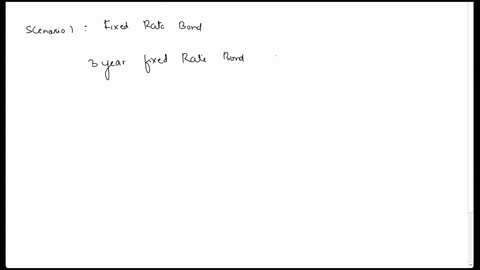 Scenario 1 : Fixed Rate Bond
3 year fixed Rate Bond